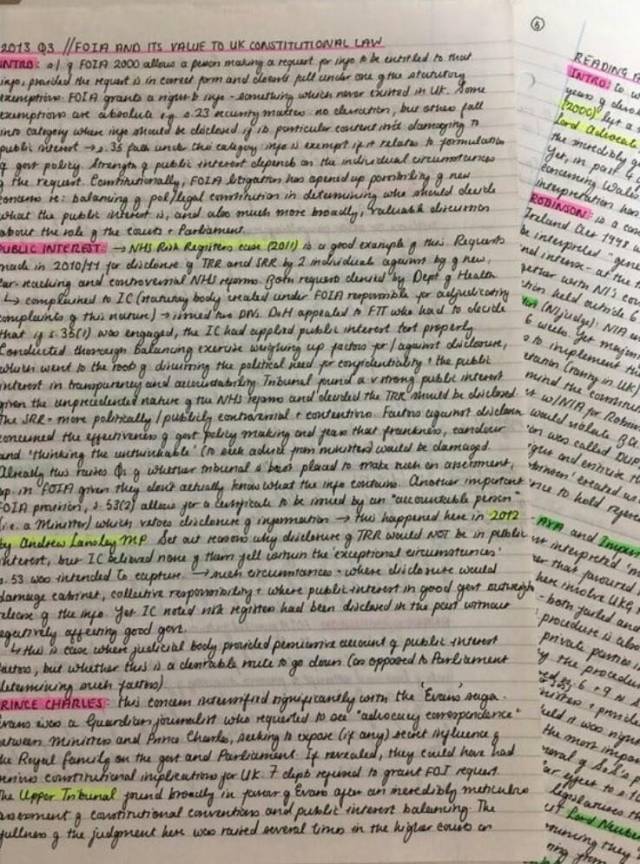 2013 Q3 // FOIA AND ITS VALUE TO UK CONSTITUTIONAL LAW
INTRO: s1 of FOIA 2000 allows a person making a request for info to be entitled to that
info, provided the request is in correct form and doesn't fall under one of the statutory
exemptions. FOIA grants a right to info - something which never existed in UK. Some
exemptions are absolute e.g. s.23 security matters: no discretion, but others fall
into category where info should be disclosed if its particular content isn't damaging to
public interest → s.35 falls under this category: info is exempt if it relates to formulation
of govt policy. Strength of public interest depends on the individual circumstances
of the request. Constitutionally, FOIA litigation has opened up possibility of new
concerns re: balancing of pol/legal constitution in determining who should decide
what the public interest is, and also much more broadly, valuable discussion
about the role of the courts + Parliament.
PUBLIC INTEREST: → NHS Risk Registers case (2011) is a good example of this. Requests
made in 2010/11 for disclosure of TRR and SRR by 2 individuals against bg of new,
far reaching and controversial NHS reforms. Both requests denied by Dept of Health
↳ complained to IC (statutory body created under FOIA responsible for adjudicating
complaints of this nature) → issued two DNs. DoH appealed to FTT who had to decide
that if s.35(1) was engaged, the IC had applied public interest test properly.
Conducted thorough balancing exercise weighing up factors for/against disclosure,
which went to the root of discerning the political need for confidentiality + the public
interest in transparency and accountability. Tribunal found a v strong public interest
given the unprecedented nature of the NHS reforms and decided the TRR should be disclosed
The SRR = more politically/publicly controversial + contentious. Factors against disclosure
concerned the effectiveness of govt policy making and fears that frankness, candour
and 'thinking the unthinkable' (to seek advice from ministers) would be damaged.
Already this raises Qs of whether tribunal is best placed to make such an assessment,
esp in FOIA given they don't actually know what the info contains. Another important
FOIA provision, s.53(2) allows for a certificate to be issued by an "accountable person"
(i.e. a Minister) which vetoes disclosure of information → this happened here in 2012
by Andrew Lansley MP. Set out reasons why disclosure of TRR would NOT be in public
interest, but IC believed none of them fell within the 'exceptional circumstances'
s.53 was intended to capture. → such circumstances = where disclosure would
damage cabinet, collective responsibility + where public interest in good govt outweighs
release of the info. Yet IC noted risk registers had been disclosed in the past without
negatively affecting good govt.
↳ this is case where judicial body provided persuasive account of public interest
factors, but whether this is a desirable route to go down (as opposed to Parliament
determining such factors)
PRINCE CHARLES: this concern intensified significantly with the 'Evans' saga.
Evans was a Guardian journalist who requested to see "advocacy correspondence"
between Ministers and Prince Charles, seeking to expose (if any) secret influence of
the Royal Family on the govt and Parliament. If revealed, they could have had
serious constitutional implications for UK. 7 depts refused to grant FOI request.
The Upper Tribunal found broadly in favour of Evans after an incredibly meticulous
assessment of constitutional conventions and public interest balancing. The
fullness of the judgment here was raised several times in the higher courts as
6
READING
INTRO: to
years of devo
(2000)
Lord Advocate
the incredibly
Yet, in part
concerning Wales
interpretation has
ROBINSON: is a case
Ireland Act 1998
be interpreted - gene
with NI's con
held outside 6
(N/judge): NIA
6 weeks. Yet
to implement
mind the constitu
w/NIA for Robin
would violate
was called DUP
created
to hold
AXA and Imper
interpreted
that favoured
here involve UKG
both parties and
procedure is also
private parties in
of the procedure
+ provide
held it was
the most impor
effect to s.
legislatures
Lord Neuber